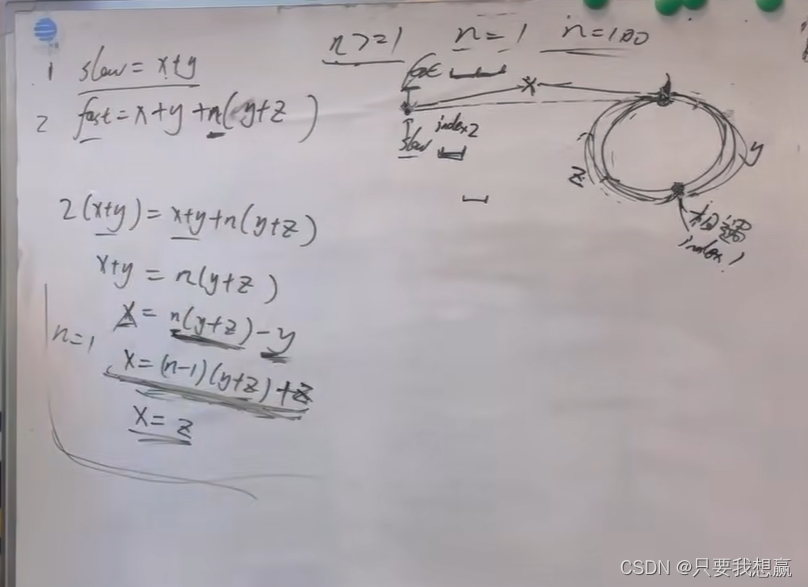 n>=1 n=1 n=100
1 slow=x+y
2 fast=x+y+n(y+z)
fast
x
slow
index2
z
y
相遇
index1
2(x+y)=x+y+n(y+z)
x+y=n(y+z)
x=n(y+z)-y
n=1
x=(n-1)(y+z)+z
x=z
CSDN @只要我想赢